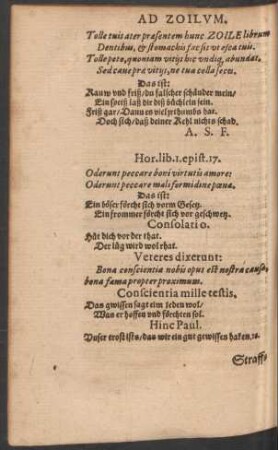 AD ZOILVM.
Tolle tuis ater præsentem hunc ZOILE librum
Dentibus, & stomachi fac sit vt esca tui.
Tolle peto, quoniam vitijs hic vndiq; abundat,
Sed cane præ vitijs, ne tua colla secet.
Das ist:
Raum vnd friß/ du falscher schänder mein/
Ein speiß laß dir diß büchlein sein.
Friß gar/ Dann es viel yrthumbs hat.
Doch sich/ daß deiner Kehl nichts schad.
A. S. F.
Hor. lib. 1. epist. 17.
Oderunt peccare boni virtutis amore:
Oderunt peccare mali formidine pœnæ.
Das ist:
Ein böser förcht sich vorm Gesetz.
Ein frommer förcht sich vor geschwetz.
Consolatio.
Hüt dich vor der that.
Der lüg wird wol rhat.
Veteres dixerunt:
Bona conscientia nobis opus est nostrâ causa,
bona fama propter proximum.
Conscientia mille testis.
Das gwissen sagt eim jeden wol/
Was er hoffen vnd förchten sol.
Hinc Paul.
Vnser trost ist/ das wir ein gut gewissen haben. ꝛc.
Straff